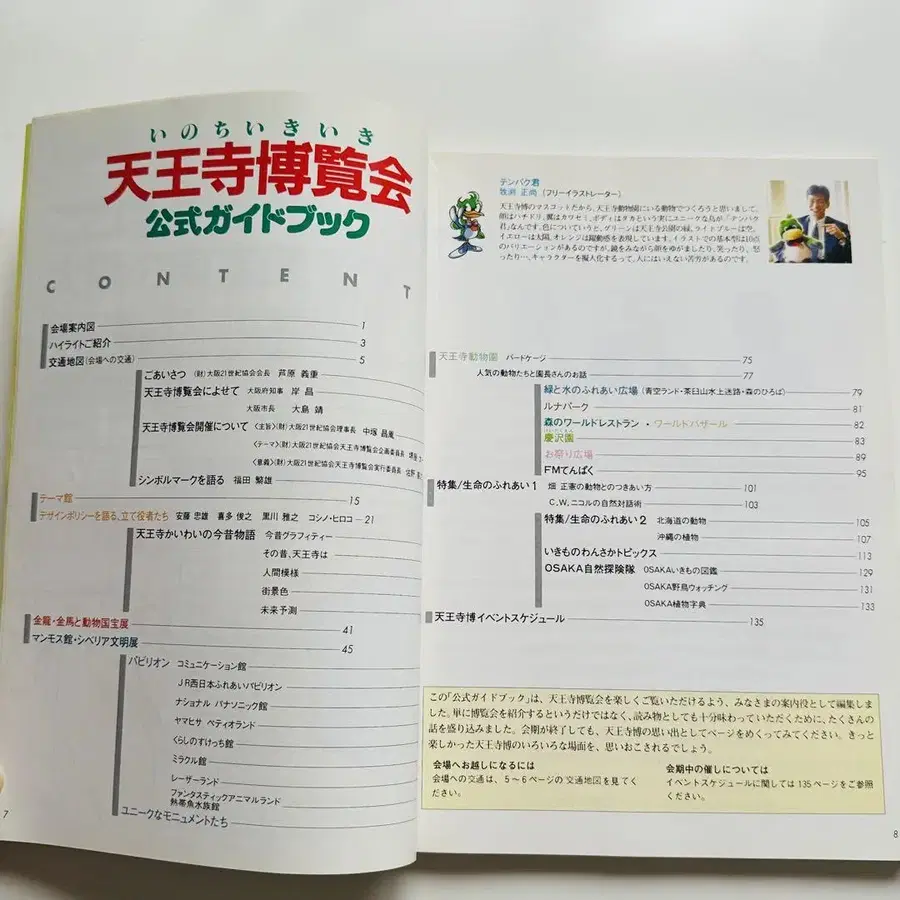 いのちいきいき
天王寺博覧会
公式ガイドブック
CONTENT
会場案内図 1
ハイライトご紹介 3
交通地図(会場への交通) 5
ごあいさつ (財)大阪21世紀協会会長 芦原 義重
天王寺博覧会によせて 大阪府知事 岸 昌
大阪市長 大島 靖
天王寺博覧会開催について 〈主旨〉(財)大阪21世紀協会理事長 中塚 昌胤
〈テーマ〉(財)大阪21世紀協会天王寺博覧会企画委員長
〈意義〉(財)大阪21世紀協会天王寺博覧会実行委員長
シンボルマークを語る 福田 繁雄
テーマ館 15
デザインポリシーを語る、立て役者たち 安藤 忠雄 喜多 俊之 黒川 雅之 コシノ・ヒロコ 21
天王寺かいわいの今昔物語 今昔グラフィティー
その昔、天王寺は
人間模様
街景色
未来予測
金龍・金馬と動物国宝展 41
マンモス館・シベリア文明展 45
パビリオン コミュニケーション館
JR西日本ふれあいパビリオン
ナショナル パナソニック館
ヤマヒサ ペティオランド
くらしのすけっち館
ミラクル館
レーザーランド
ファンタスティックアニマルランド
熱帯魚水族館
ユニークなモニュメントたち
7
テンパク君
牧渕 正尚 (フリーイラストレーター)
天王寺博のマスコットだから、天王寺動物園にいる動物でつくろうと思いまして。
顔はハチドリ、翼はカワセミ、ボディはタカという実にユニークな鳥が、「テンパク
君」なんです。色についていうと、グリーンは天王寺公園の緑、ライトブルーは空、
イエローは太陽、オレンジは躍動感を表現しています。イラストでの基本型は10点
のバリエーションがあるのですが、鏡をみながら顔をゆがましたり、笑ったり、怒
ったり…、キャラクターを擬人化するって、人にはいえない苦労があるのです。
天王寺動物園 バードケージ 75
人気の動物たちと園長さんのお話 77
緑と水のふれあい広場 (青空ランド・茶臼山水上迷路・森のひろば) 79
ルナパーク 81
森のワールドレストラン・ワールドバザール 82
慶沢園 83
お祭り広場 89
FMてんぱく 95
特集/生命のふれあい1 畑 正憲の動物とのつきあい方 101
C.W.ニコルの自然対話術 103
特集/生命のふれあい2 北海道の動物 105
沖縄の植物 107
いきものわんさかトピックス 113
OSAKA自然探険隊 OSAKAいきもの図鑑 129
OSAKA野鳥ウォッチング 131
OSAKA植物字典 133
天王寺博イベントスケジュール 135
この「公式ガイドブック」は、天王寺博覧会を楽しくご覧いただけるよう、みなさまの案内役として編集しま
した。単に博覧会を紹介するというだけではなく、読み物としても十分味わっていただくために、たくさんの
話を盛り込みました。会期が終了しても、天王寺博の思い出としてページをめくってみてください。きっと
楽しかった天王寺博のいろいろな場面を、思いおこされるでしょう。
会場へお越しになるには
会場への交通は、5～6ページの交通地図を見てく
ださい。
会期中の催しについては
イベントスケジュールに関しては135ページをご参照
ください。
8